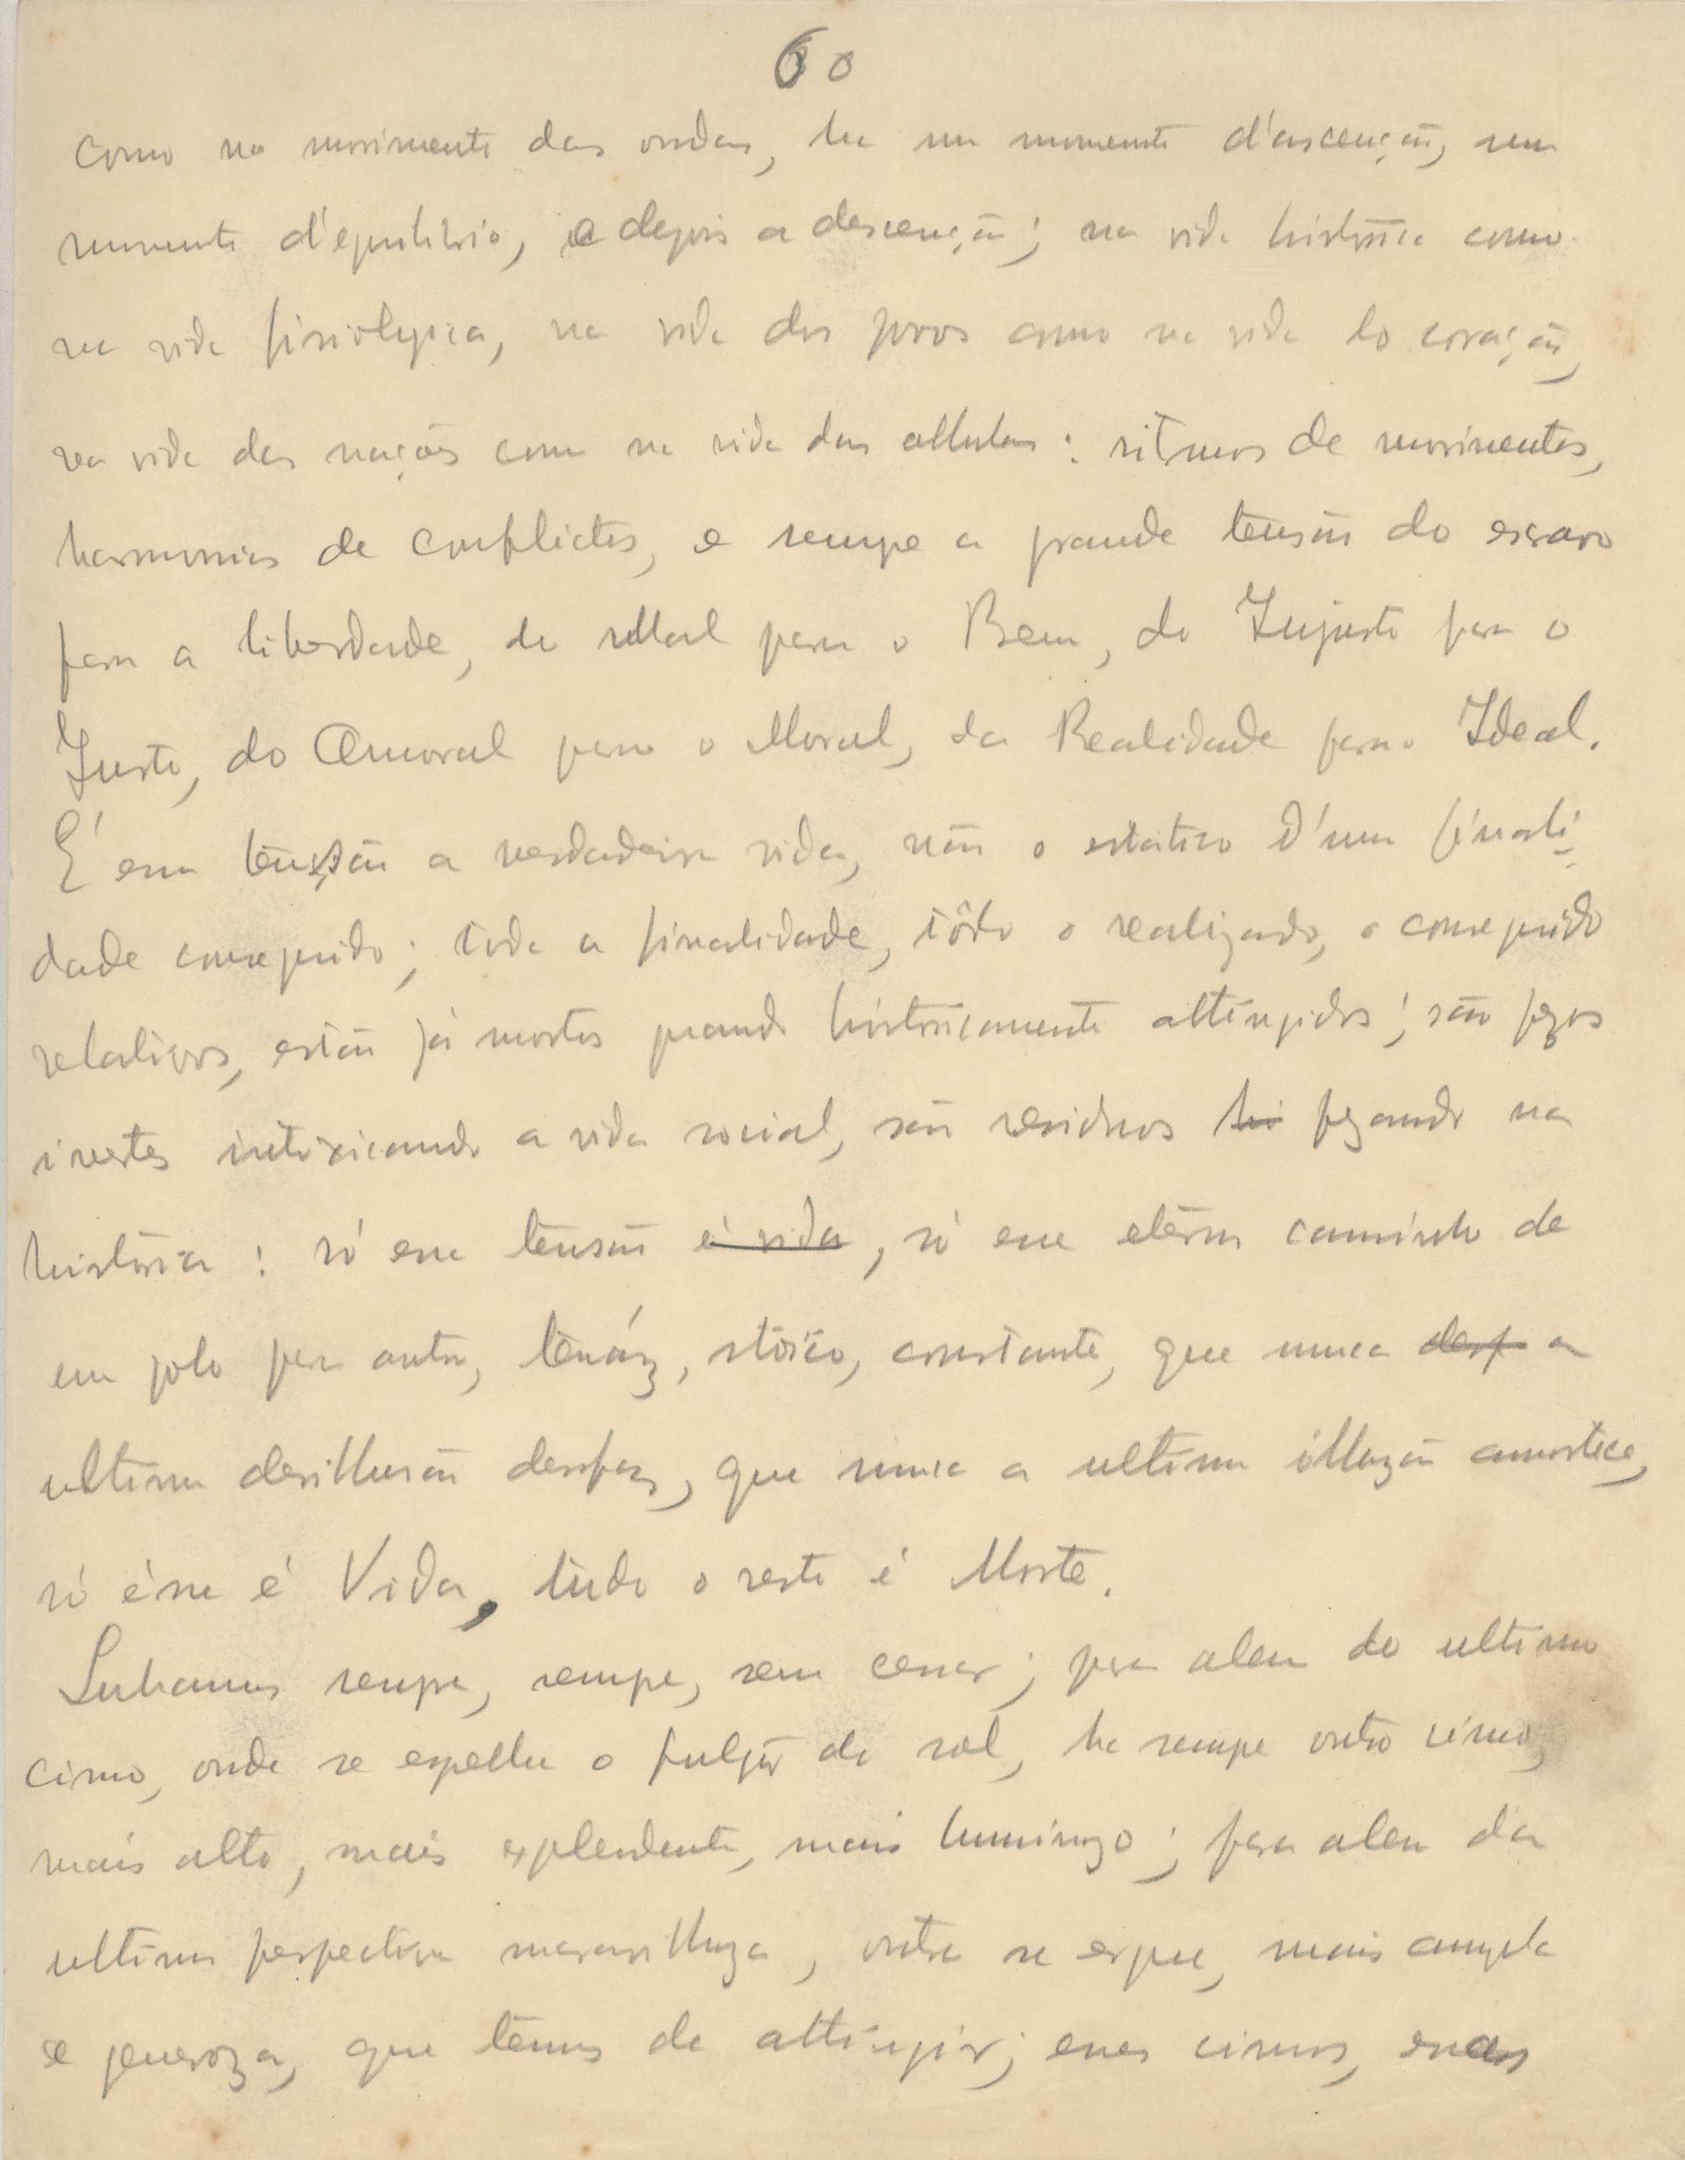 60
como no movimento das ondas, ha um momento d'ascenção, um
momento d'equilibrio, e depois a descenção; na vida historica como
na vida fisiologica, na vida dos povos como na vida do coração,
na vida das nações como na vida das cellulas: ritmos de movimentos,
harmonias de conflictos, e sempre a grande tensão do escravo
para a liberdade, do Mal para o Bem, do Injusto para o
Justo, do Amoral para o Moral, da Realidade para o Ideal.
É essa tensão a verdadeira vida, não o estatico d'uma finali-
dade conseguida; toda a finalidade, tôdo o realizado, o conseguido
relativos, estão já mortos quando historicamente attingidos; são pezos
inertes intoxicando a vida social, são residuos hi pezando na
história: só essa tensão é vida, só esse eterno caminho de
um polo para outro, tenáz, stóico, constante, que nunca desf a
ultima desillusão desfaz, que nunca a ultima illuzão amortece,
só ésse é Vida, tudo o resto é Morte.
Subamos sempre, sempre, sem cessar; para alem do ultimo
cimo, onde se espelha o fulgôr do sol, ha sempre outro cimo,
mais alto, mais explendente, mais luminozo; para alem da
ultima perspectiva maravilhoza, outra se ergue, mais ampla
e generoza, que temos de attingir; esses cimos, essas